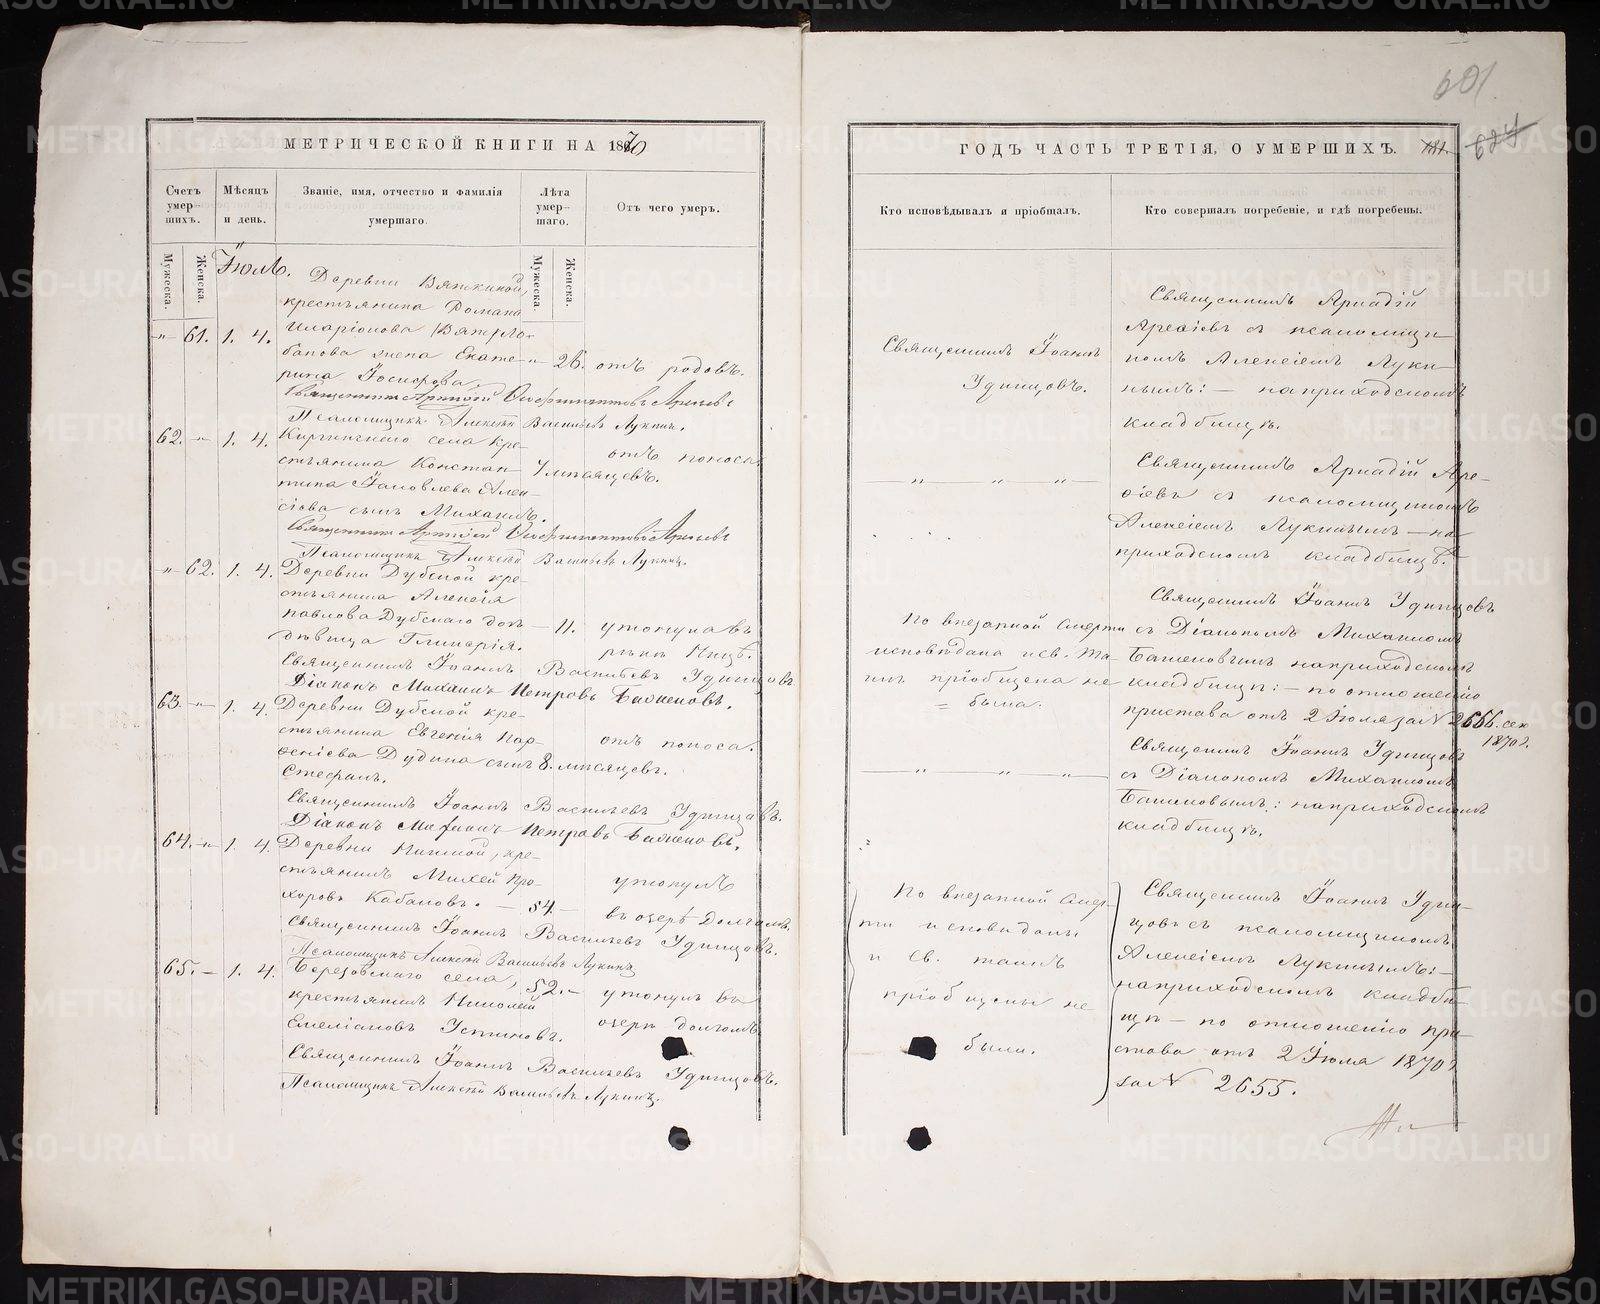 МЕТРИЧЕСКОЙ КНИГИ НА 1870
Счетъ умер-шихъ.
Мѣсяцъ и день.
Званіе, имя, отчество и фамилія умершаго.
Лѣта умер-шаго.
Отъ чего умеръ.
Мужеска.
Женска.
Мужеска.
Женска.
Іюль.
Деревни Вяткиной,
крестьянина Романа
" 61. 1. 4. Иларіонова
банова жена Екате- " 26. отъ родовъ.
рина Іосифова.
Священникъ
Псаломщикъ Алексѣй Васильевъ Лукинъ.
62. " 1. 4. Киргинскаго села кре-
стьянина Констан- 7 мѣсяцевъ. отъ поноса.
тина Яковлева Алек-
сѣева сынъ Михаилъ.
Священникъ
Псаломщикъ Алексѣй Васильевъ Лукинъ.
" 62. 1. 4. Деревни Дубской кре-
стьянина Алексія
Павлова Дубскаго дочь — 11. утонула въ
дѣвица Гликерія. рѣкѣ Ницѣ.
Священникъ Іоаннъ Васильевъ Удинцовъ.
Діаконъ Михаилъ Петровъ Баженовъ.
63. " 1. 4. Деревни Дубской кре-
стьянина Евгенія Пар- отъ поноса.
ѳеніева Дудина сынъ 8. мѣсяцевъ.
Стефанъ.
Священникъ Іоаннъ Васильевъ Удинцовъ.
Діаконъ Михаилъ Петровъ Баженовъ.
64. " 1. 4. Деревни кре-
стьянинъ Михей Про- утонулъ
хоровъ Кабановъ. — 54. — въ озерѣ Долгомъ.
Священникъ Іоаннъ Васильевъ Удинцовъ.
Псаломщикъ Алексѣй Васильевъ Лукинъ
65. — 1. 4. Березовскаго села, 52. — утонулъ въ
крестьянинъ Николай
Емеліановъ Устиновъ. озерѣ Долгомъ
Священникъ Іоаннъ Васильевъ Удинцовъ.
Псаломщикъ Алексѣй Васильевъ Лукинъ.
601
ГОДЪ ЧАСТЬ ТРЕТІЯ, О УМЕРШИХЪ.
Кто исповѣдывалъ и пріобщалъ.
Кто совершалъ погребеніе, и гдѣ погребены.
Священникъ Іоаннъ
Удинцовъ.
Священникъ Аркадій
Арефіевъ съ псаломщи-
комъ Алексіемъ Луки-
нымъ: — на приходскомъ
кладбищѣ.
" " "
Священникъ Аркадій Аре-
фіевъ съ псаломщикомъ
Алексіемъ Лукинымъ — на
приходскомъ кладбищѣ.
По внезапной смерти
исповѣдана и св. Та-
инъ пріобщена не
= была.
Священникъ Іоаннъ Удинцовъ
съ Діакономъ Михаиломъ
Баженовымъ на приходскомъ
кладбищѣ: — по отношенію
пристава отъ 2 Іюля за № 2656. сего
1870 г.
" " "
Священникъ Іоаннъ Удинцовъ
съ Діакономъ Михаиломъ
Баженовымъ: на приходскомъ
кладбищѣ.
По внезапной смер-
ти исповѣданы
и св. таинъ
пріобщены не
были.
Священникъ Іоаннъ Удин-
цовъ съ псаломщикомъ
Алексіемъ Лукинымъ: —
на приходскомъ кладби-
щѣ — по отношенію при-
става отъ 2 Іюля 1870 г
за № 2655.
METRIKI.GASO-URAL.RU